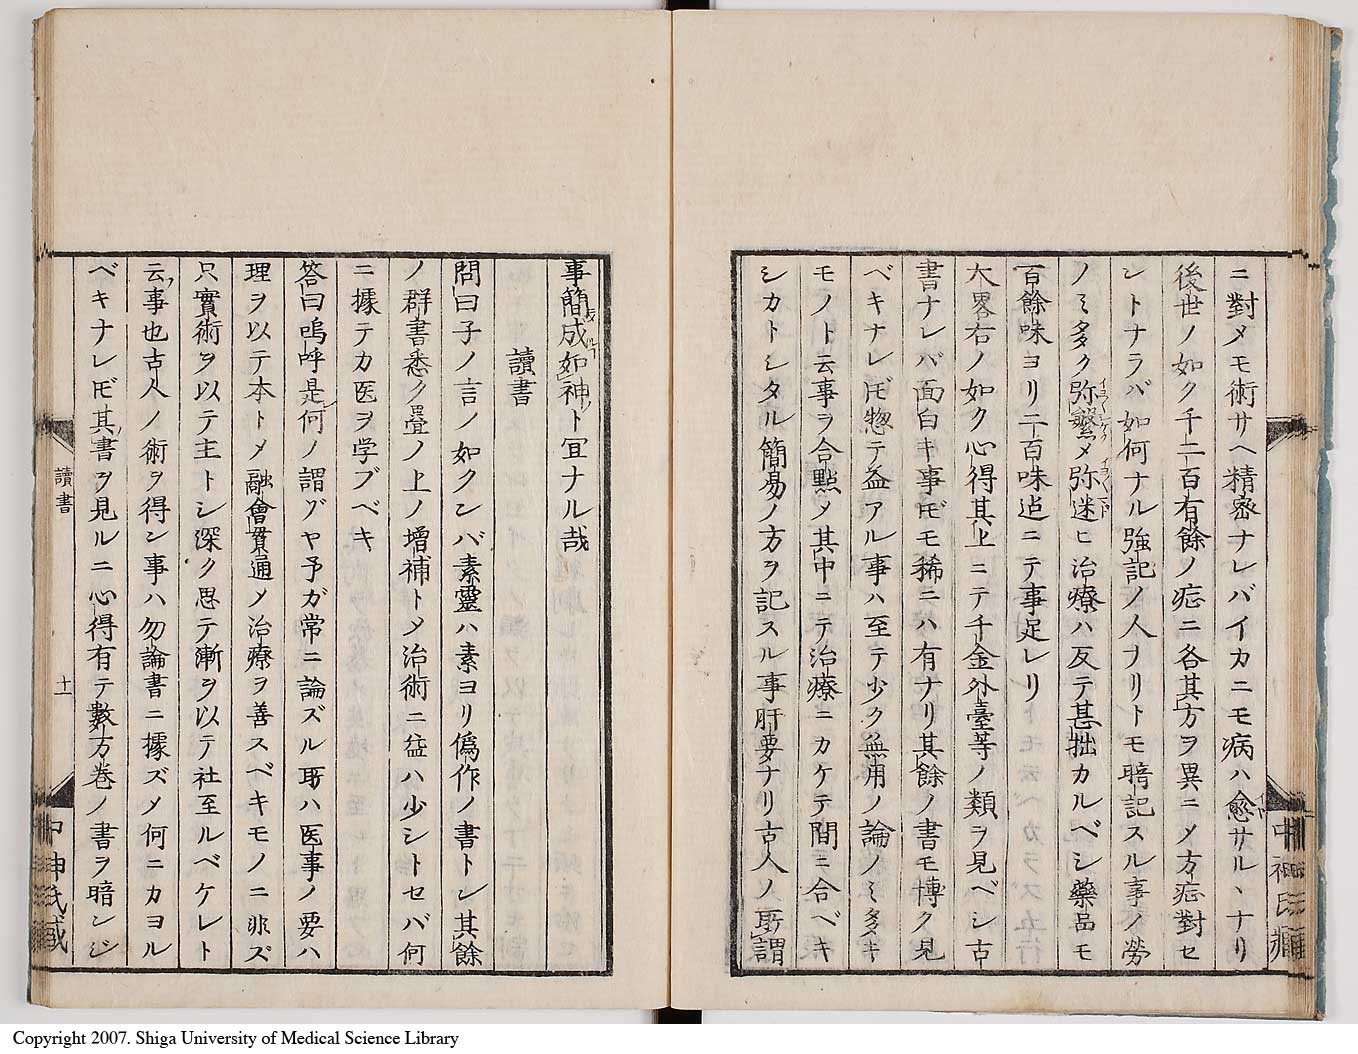 ニ對メモ術サヘ精密ナレバイカニモ病ハ愈サルヽナリ
後世ノ如ク千二百有餘ノ症ニ各其方ヲ異ニメ方症對セ
ントナラバ如何ナル強記ノ人ナリトモ暗記スル事ノ勞
ノミ多ク弥繁メ弥迷ヒ治療ハ反テ甚拙カルベシ藥品モ
百餘味ヨリ二百味迠ニテ事足レリ
大畧右ノ如ク心得其上ニテ千金外臺等ノ類ヲ見ベシ古
書ナレバ面白キ事𪜈モ稀ニハ有ナリ其餘ノ書モ博ク見
ベキナレ𪜈惣テ益アル事ハ至テ少ク無用ノ論ノミ多キ
モノト云事ヲ合點メ其中ニテ治療ニカケテ間ニ合ベキ
シカトシタル簡易ノ方ヲ記スル事肝要ナリ古人ノ所謂
事簡成如神ト冝ナル哉
讀書
問曰子ノ言ノ如クンバ素靈ハ素ヨリ偽作ノ書トシ其餘
ノ群書悉ク畳ノ上ノ増補トメ治術ニ益ハ少シトセバ何
ニ據テカ医ヲ学ブベキ
答曰嗚呼是何ノ謂グヤ予ガ常ニ論ズル所ハ医事ノ要ハ
理ヲ以テ本トメ融會貫通メ治療ヲ善スベキモノニ非ズ
只實術ヲ以テ主トシ深ク思テ漸ヲ以テ社至ルベケレト
云事也古人ノ術ヲ得ン事ハ勿論書ニ據ズメ何ニカヨル
ベキナレ𪜈其書ヲ見ルニ心得有テ數万巻ノ書ヲ暗ンジ
讀書
十一
中神氏藏
Copyright 2007. Shiga University of Medical Science Library